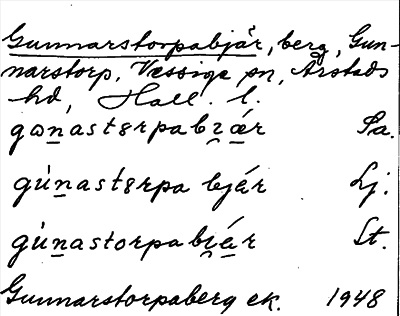 Gunnarstorpabjär, berg, Gun-
narstorp, Vessige sn, Årstads
hd, Hall. l.
gωnastɜrpabɿǽr Sa.
gúnastɜrpa bjǽr Lj.
gúnastorpabjǽr St.
Gunnarstorpaberg ek. 1948